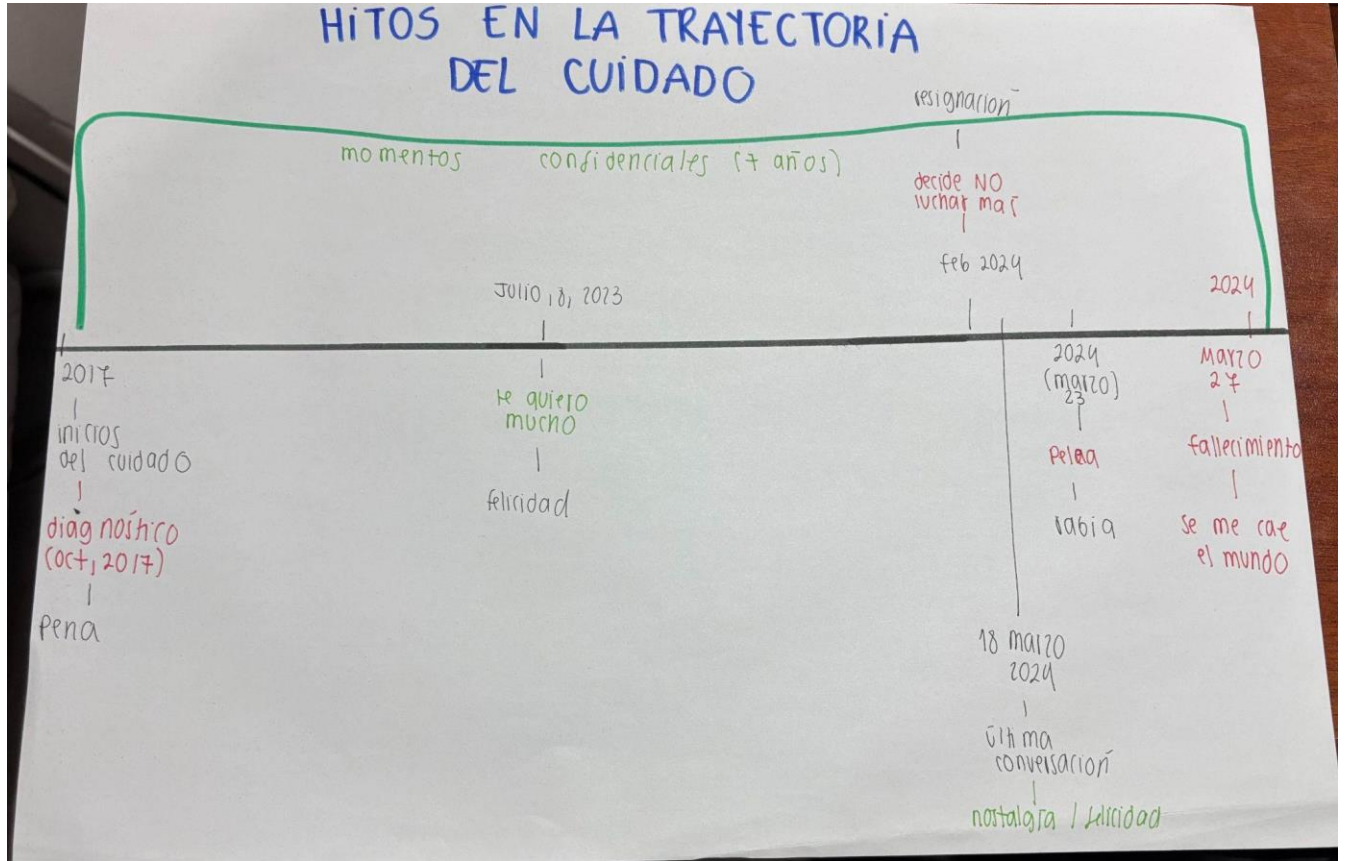 HITOS EN LA TRAYECTORIA
DEL CUIDADO
momentos confidenciales (7 años)
resignación
decide NO
luchar más
feb 2024
Julio, 8, 2023
2024
2017
inicios
del cuidado
diagnóstico
(oct, 2017)
pena
te quiero
mucho
felicidad
2024
(marzo)
23
Pelea
rabia
Marzo
27
fallecimiento
se me cae
el mundo
18 marzo
2024
última
conversación
nostalgia / felicidad